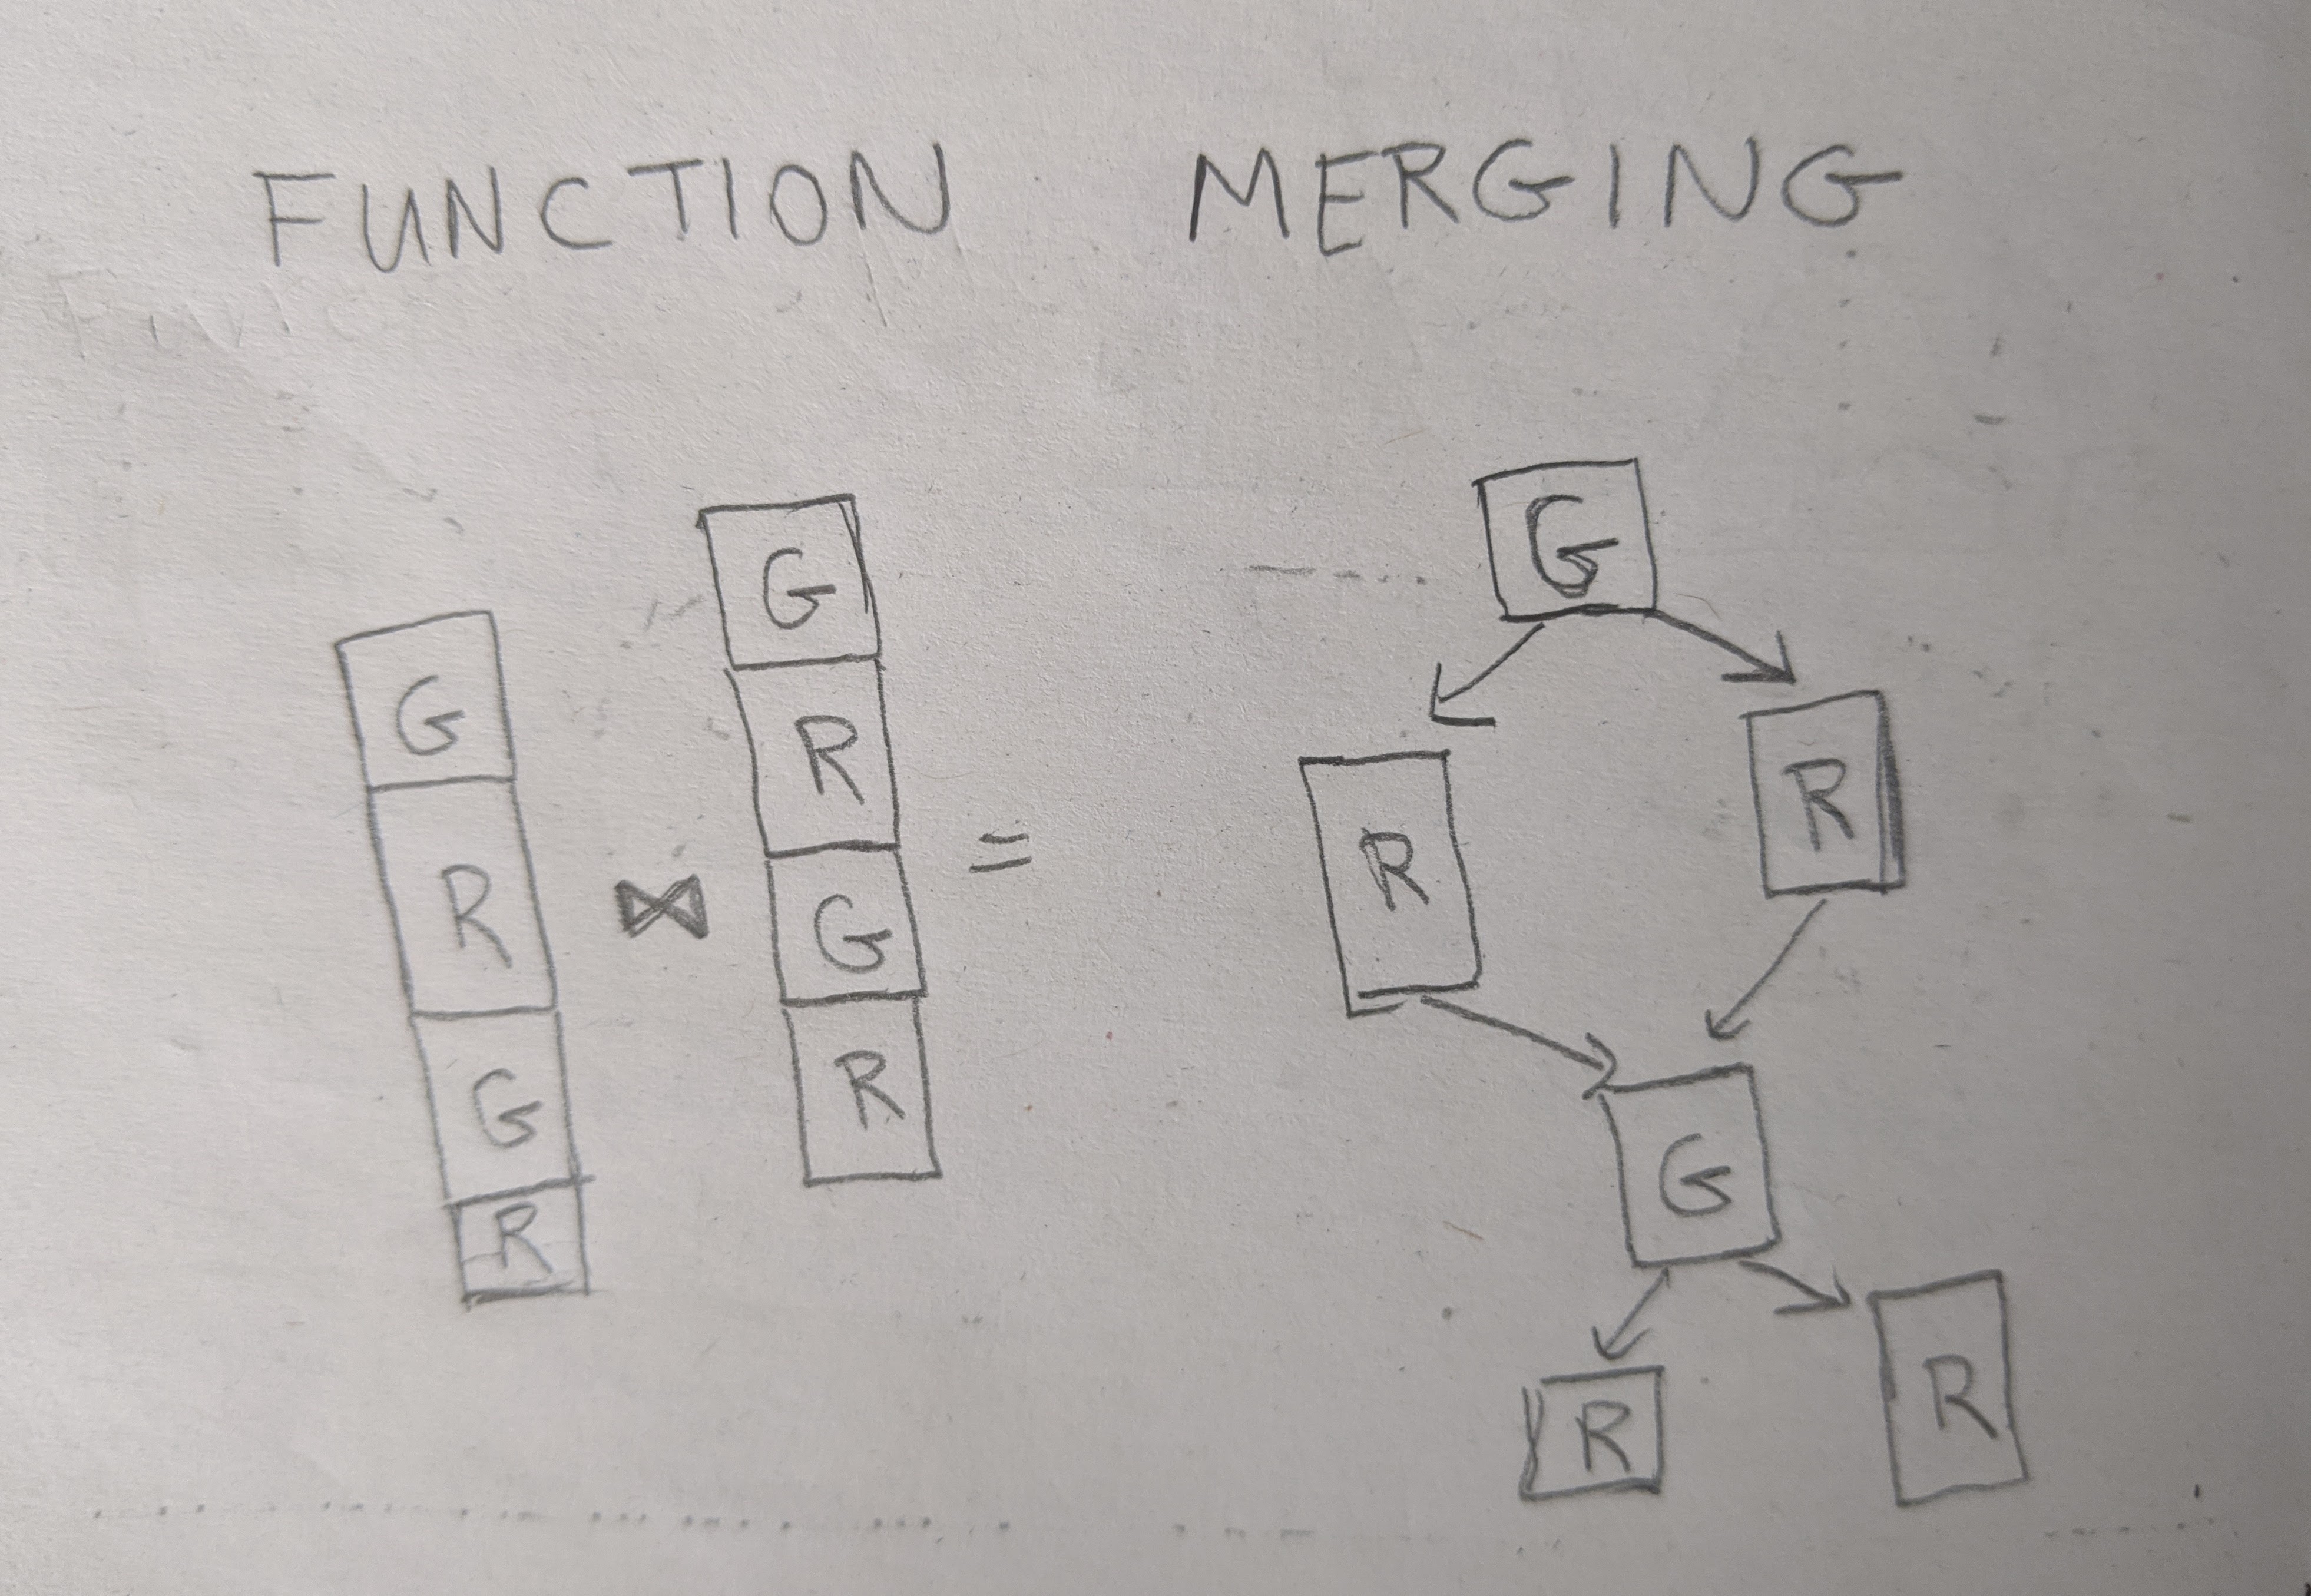 FUNCTION MERGING
G
R
G
R
⋈
G
R
G
R
=
G
R
R
G
R
R